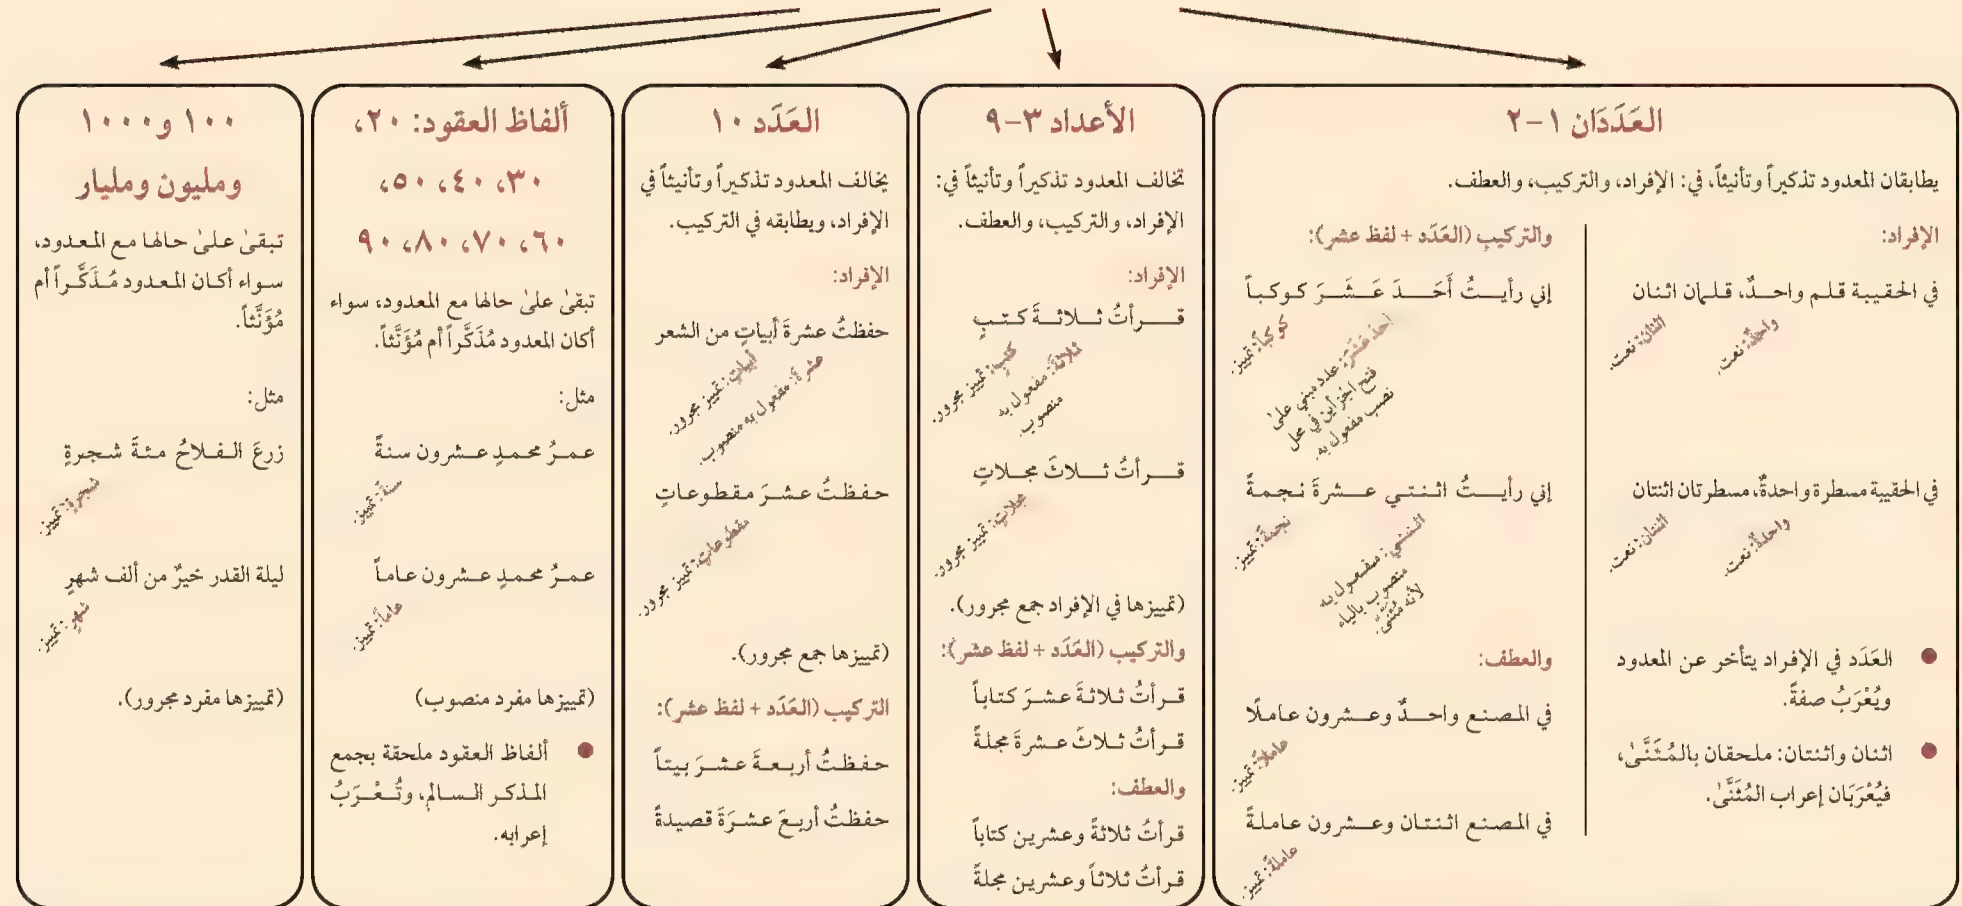 العَدَدَان ١-٢
يطابقان المعدود تذكيراً وتأنيثاً، في: الإفراد، والتركيب، والعطف.
الإفراد:
في الحقيبة قلم واحدٌ، قلمان اثنان
واحدٌ: نعت.
اثنان: نعت.
في الحقيبة مسطرة واحدةٌ، مسطرتان اثنتان
واحدةٌ: نعت.
اثنتان: نعت.
● العَدَد في الإفراد يتأخر عن المعدود
ويُعْرَبُ صفةً.
● اثنان واثنتان: ملحقان بالمُثَنَّىٰ،
فيُعْرَبَان إعراب المُثَنَّىٰ.
والتركيبِ (العَدَد + لفظ عشر):
إني رأيــتُ أَحَــدَ عَــشَــرَ كوكباً
أحدَ عَشَرَ: عدد مبني علىٰ
فتح الجزأين في محل
نصب مفعول به.
كوكباً: تمييز.
إني رأيــتُ اثنتي عــشرةَ نجمةً
اثنتي: مفعول به
منصوب بالياء
لأنه مُثَنَّىٰ.
نجمةً: تمييز.
والعطف:
في المصنع واحــدٌ وعــشرون عاملًا
عاملًا: تمييز.
في المصنع اثنتان وعــشرون عاملةً
عاملةً: تمييز.
الأعداد ٣-٩
تخالف المعدود تذكيراً وتأنيثاً في:
الإفراد، والتركيب، والعطف.
الإفراد:
قــرأتُ ثــلاثــةَ كتبٍ
ثلاثةَ: مفعول به
منصوب.
كتبٍ: تمييز مجرور.
قــرأتُ ثــلاثَ مجــلاتٍ
مجلاتٍ: تمييز مجرور.
(تمييزها في الإفراد جمع مجرور).
والتركيب (العَدَد + لفظ عشر):
قرأتُ ثلاثةَ عشرَ كتاباً
قرأتُ ثلاثَ عشرةَ مجلةً
والعطف:
قرأتُ ثلاثةً وعشرين كتاباً
قرأتُ ثلاثاً وعشرين مجلةً
العَدَد ١٠
يخالف المعدود تذكيراً وتأنيثاً في
الإفراد، ويطابقه في التركيب.
الإفراد:
حفظتُ عشرةَ أبياتٍ من الشعر
عشرةَ: مفعول به منصوب.
أبياتٍ: تمييز مجرور.
حفظتُ عشرَ مقطوعاتٍ
مقطوعاتٍ: تمييز مجرور.
(تمييزها جمع مجرور).
التركيب (العَدَد + لفظ عشر):
حفظتُ أربعةَ عشرَ بيتاً
حفظتُ أربعَ عشرَةَ قصيدةً
ألفاظ العقود: ٢٠،
٣٠، ٤٠، ٥٠،
٦٠، ٧٠، ٨٠، ٩٠
تبقىٰ علىٰ حالها مع المعدود، سواء
أكان المعدود مُذَكَّراً أم مُؤَنَّثاً.
مثل:
عمرُ محمدٍ عشرون سنةً
سنةً: تمييز.
عمرُ محمدٍ عشرون عاماً
عاماً: تمييز.
(تمييزها مفرد منصوب)
● ألفاظ العقود ملحقة بجمع
المذكر السالم، وتُــعْــرَبُ
إعرابه.
١٠٠ و١٠٠٠
ومليون ومليار
تبقىٰ علىٰ حالها مع المعدود،
سواء أكان المعدود مُذَكَّراً أم
مُؤَنَّثاً.
مثل:
زرعَ الفلاحُ مئةَ شجرةٍ
شجرةٍ: تمييز.
ليلة القدر خيرٌ من ألف شهرٍ
شهرٍ: تمييز.
(تمييزها مفرد مجرور).